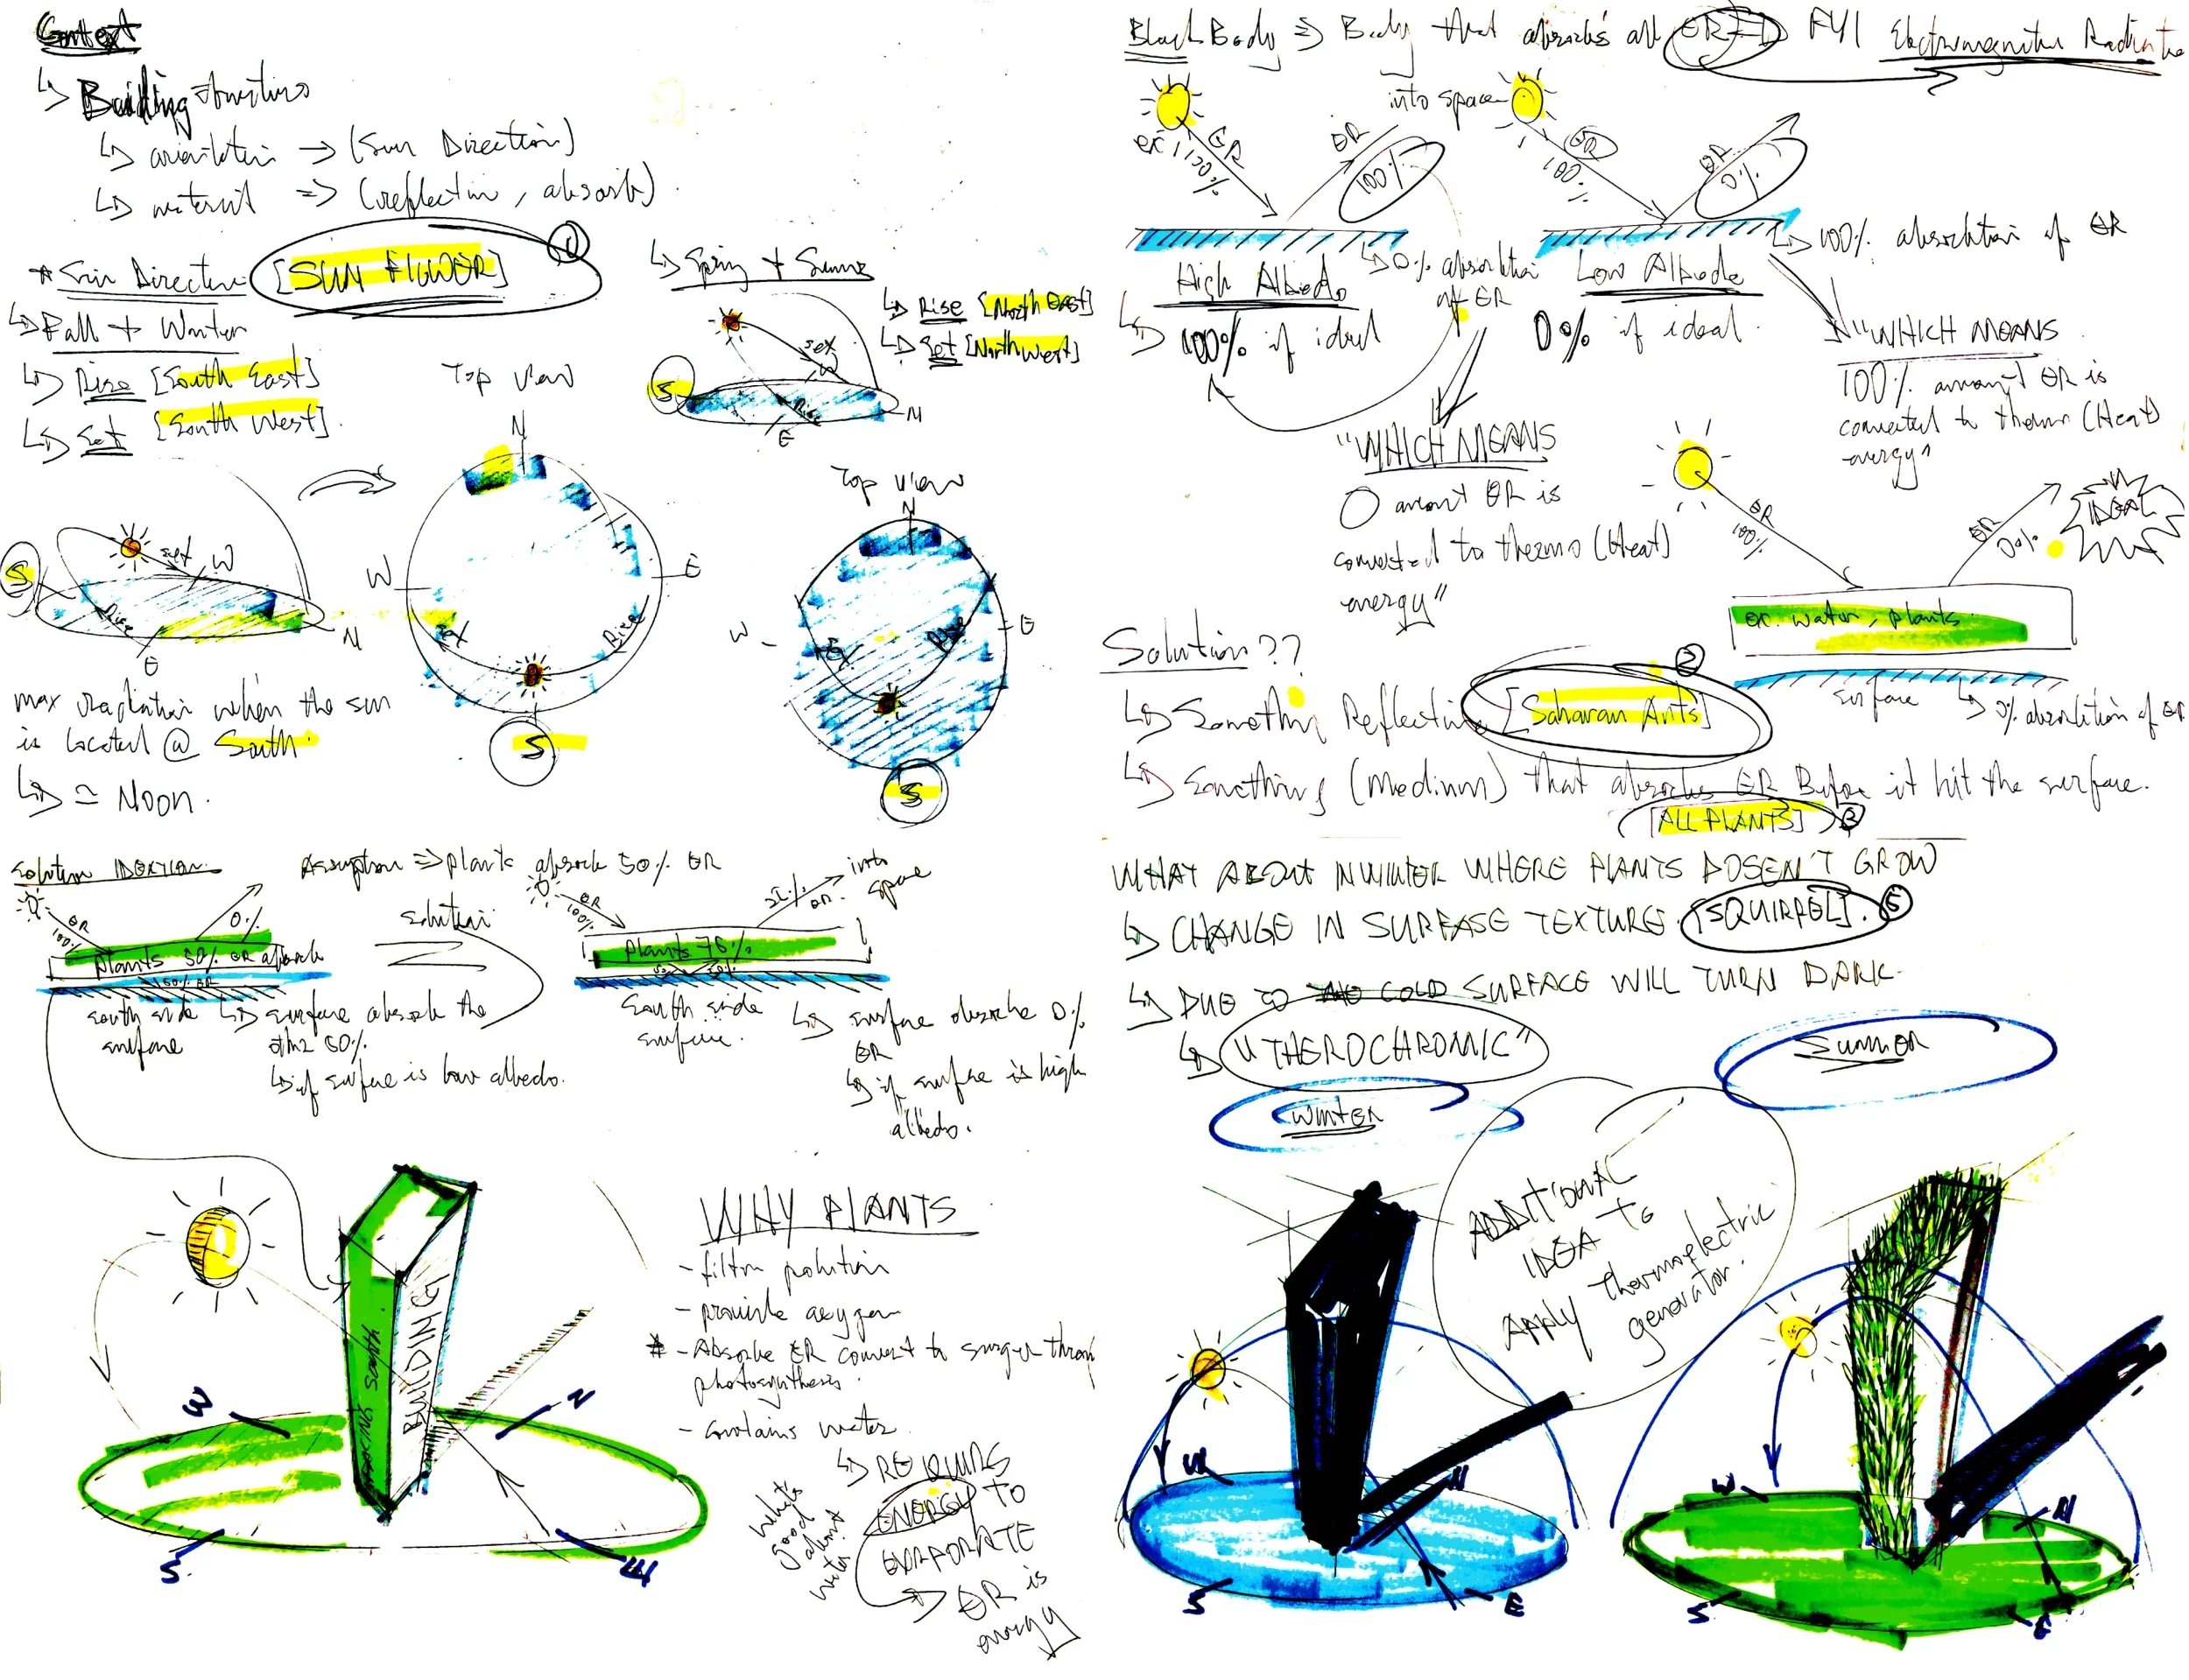 Context
↳ Building structures
↳ orientation → (Sun Direction)
↳ material ⇒ (reflection, absorb)
* Sun Direction [SUN FLOWER] ①
↳ Fall + Winter
↳ Rise [South East]
↳ Set [South West].
↳ Spring + Summer
↳ Rise [North East]
↳ Set [North West]
set
W
S
Rise
E
N
Top view
N
W
E
set
Rise
S
set
W
S
Rise
E
N
Top view
N
W
E
Rise
S
max radiation when the sun
is located @ South.
↳ ≃ NOON.
Solution IDEATION
Assumption ⇒ plants absorb 50% ER
ER
100%
0%
plants 50% ER absorb
50% ER
south side
surface
↳ surface absorb the
other 50%
↳ if surface is low albedo.
solution
ER
100%
25%
ER.
into
space
Plants 75%
50%
South side
surface.
↳ surface absorbe 0%
ER
↳ if surface is high
albedo.
FACING SOUTH
BUILDING
W
N
S.
E
WHY PLANTS
- filter polution
- provide oxygen
* - Absorbe ER convert to surger throu
photosynthesis.
- contains water
↳ REQUIRS
ENERGY TO
EVAPORATE
ER is
energy
whats
good
about
water.
Black Body ⇒ Body that absorbs all ER ⇒ FYI Electromagnetic Radiation
ex.
100%
ER
ER
100%
into space
High Albiedo
↳ 100% if ideal
↳ 0% absorbtion
of ER
"WHICH MEANS
0 amount ER is
converted to thermo (Heat)
energy"
ER
100%
ER
0%
Low Albiedo
0% if ideal.
↳ 100% absorbtion of ER
"WHICH MEANS
100% amount ER is
converted to thermo (Heat)
energy"
ER
100%
ER
0%
IDEAL
ex. water, plants
surface
↳ 0% absorbtion of ER
Solution??
↳ Something Reflecting [Saharan Ants] ②
↳ Something (Medium) that absorbs ER Before it hit the surface.
[ALL PLANTS] ③
WHAT ABOUT IN WINTER WHERE PLANTS DOSEN'T GROW
↳ CHANGE IN SURFASE TEXTURE. [SQUIRREL].
↳ DUE TO COLD SURFACE WILL TURN DARK.
↳ "THEROCHROMIC"
WINTER
SUMMER
ADDITIONAL
IDEA TO
APPLY thermoelectric
generator.
W
N
S
E
W
N
S
E